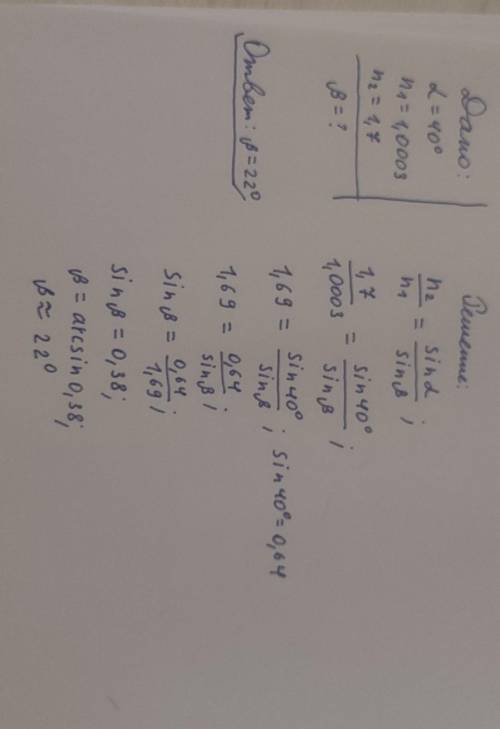 Дано:
α = 40°
n₁ = 1,0003
n₂ = 1,7
β = ?
Решение:
n₂/n₁ = sinα/sinβ;
1,7/1,0003 = sin40°/sinβ;
1,69 = sin40°/sinβ; sin40° = 0,64
1,69 = 0,64/sinβ;
sinβ = 0,64/1,69;
sinβ = 0,38;
β = arcsin 0,38;
β ≈ 22°
Ответ: β = 22°